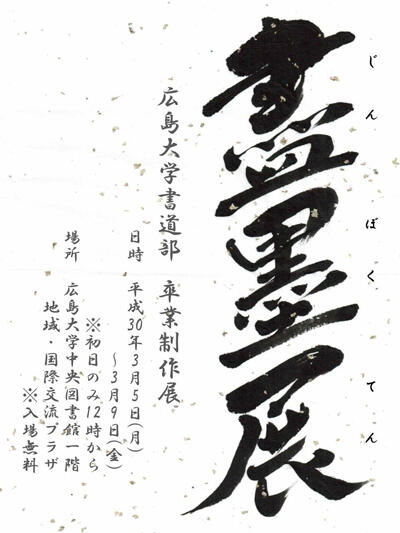 盡墨展
じんぼくてん
広島大学書道部 卒業制作展
日時 平成30年3月5日(月)
～3月9日(金)
※初日のみ12時から
場所 広島大学中央図書館一階
地域・国際交流プラザ
※入場無料